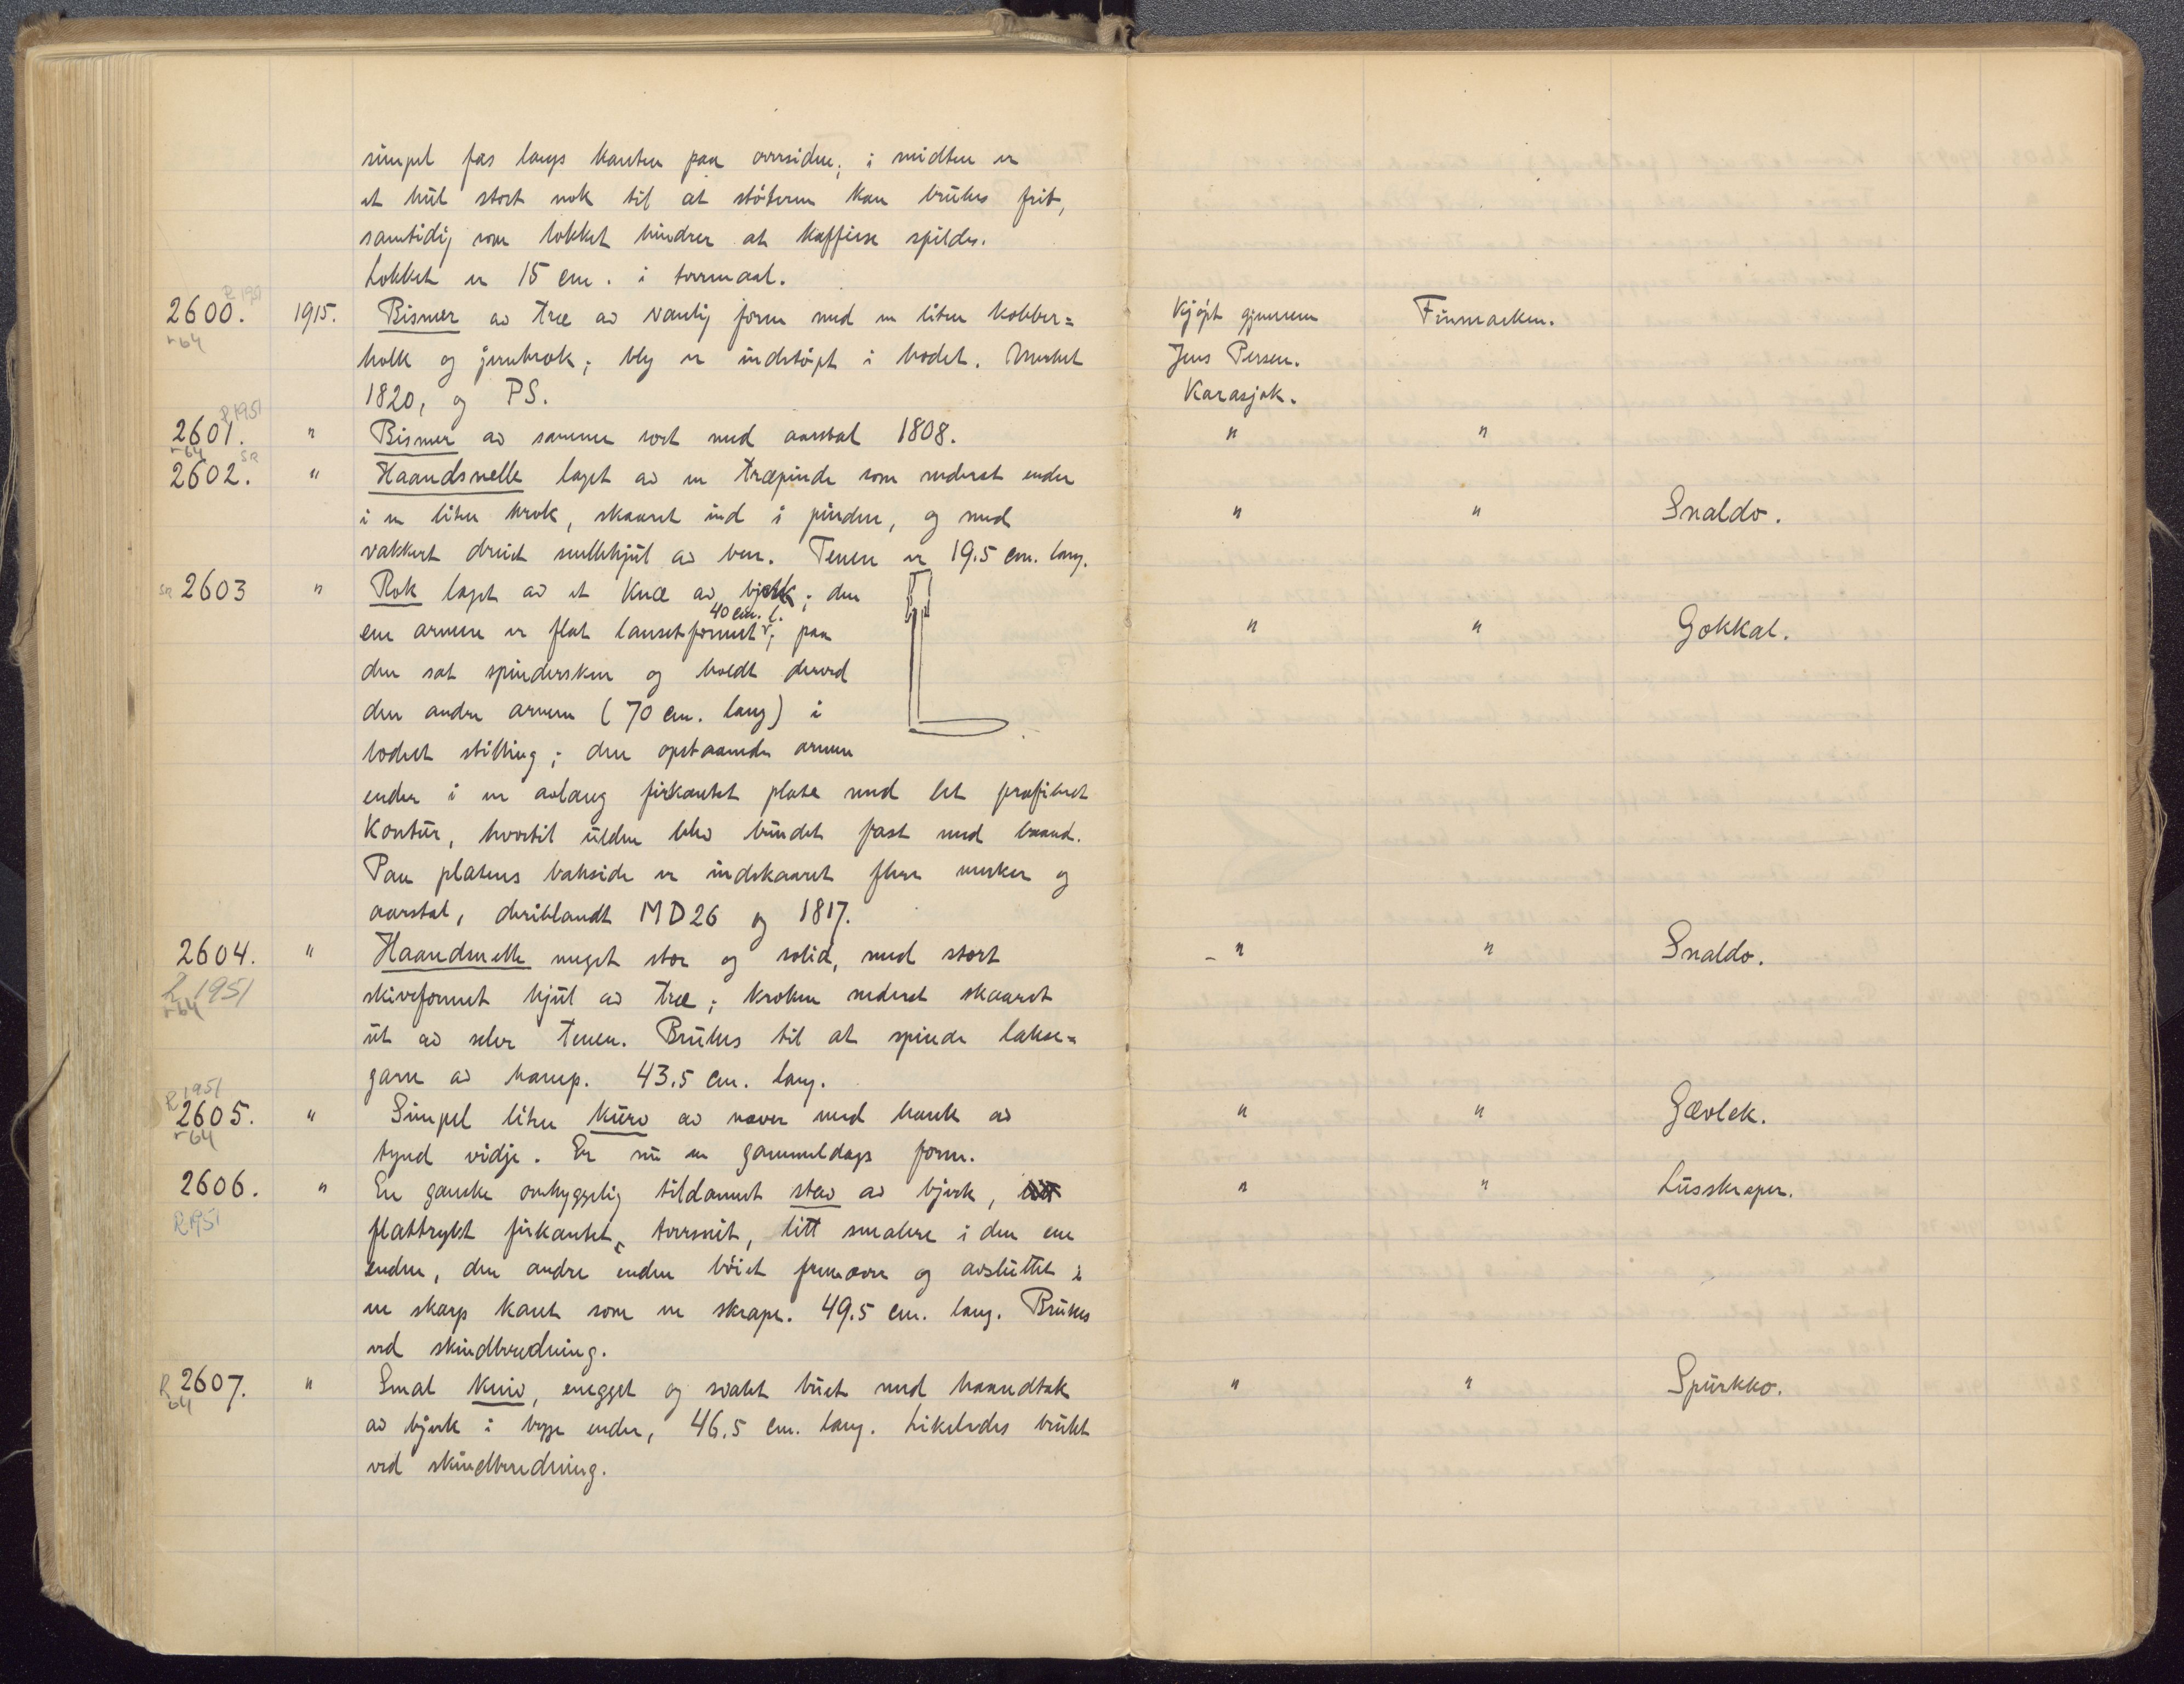 simpel fas langs kanten paa oversiden; i midten er
et hul stort nok til at støteren kan brukes frit,
samtidig som lokket hindrer at kaffien spildes.
Lokket er 15 cm. i tvermaal.
R 1951
2600. 1915. Bismer av træ av vanlig form med en liten kobber= Kjøpt gjennem Finmarken.
r 64 holk og jernkrok; bly er indstøpt i hodet. Merket Jens Persen.
1820, og PS. Karasjok.
R 1951
2601. " Bismer av samme sort med aarstal 1808. " "
r 64 sa
2602. " Haandsnelle laget av en træpinde som nederst ender
i en liten krok, skaaret ind i pinden, og med " " Snaldo.
vakkert dreiet snellehjul av ben. Tenen er 19.5 cm. lang.
sa 2603 " Rok laget av et Knæ av bjerk; den
40 cm. l.
ene armen er flat lansetformet, paa " " Gokkal.
den sat spindersken og holdt derved
den andre armen (70 cm. lang) i
lodret stilling; den opstaaende armen
ender i en avlang firkantet plate med let profileret
Kontur, hvortil ulden blev bundet fast med baand.
Paa platens bakside er indskaaret flere merker og
aarstal, deriblandt MD26 og 1817.
2604. " Haandsnelle meget stor og solid, med stort " " Snaldo.
R 1951 skiveformet hjul av træ; kroken nederst skaaret
r 64
ut av selve tenen. Brukes til at spinde lakse=
garn av hamp. 43.5 cm. lang.
R 1951
2605. " Simpel liten kurv av næver med hank av " " Gævlek.
r 64 tynd vidje. Er nu en gammeldags form.
2606. " En ganske omhyggelig tildannet stav av bjerk, " " Lusskraper.
R 1951 flattrykt firkantet tversnit, litt smalere i den ene
enden, den andre enden bøiet fremover og avsluttet i
en skarp kant som en skrape. 49.5 cm. lang. Brukes
ved skindberedning.
R 2607. " Smal kniv, enegget og svakt buet med haandtak " " Spurkko.
64 av bjerk i begge ender, 46.5 cm. lang. Likeledes brukt
ved skindberedning.